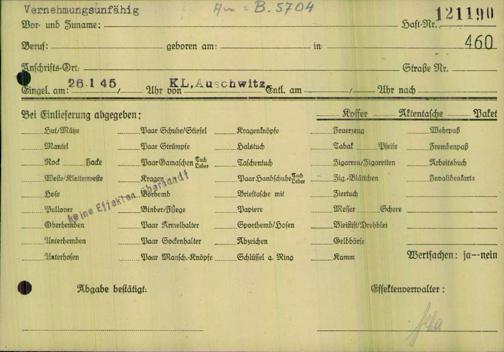 Vernehmungsunfähig A = B.5704
Vor- und Zuname: Haft-Nr. 121190
Beruf: geboren am: in 460
Anschrifts-Ort: Straße Nr.
Eingel. am: 26.1.45 Uhr von KL.Auschwitz Entl. am Uhr nach
Bei Einlieferung abgegeben: Koffer Aktentasche Paket
Hut/Mütze Paar Schuhe/Stiefel Kragenknöpfe Feuerzeug Wehrpaß
Mantel Paar Strümpfe Halstuch Tabak Pfeife Fremdenpaß
Rock Jacke Paar Gamaschen Tuch Leder Taschentuch Zigarren/Zigaretten Arbeitsbuch
Weste/Kletterweste Kragen Paar Handschuhe Tuch Leder Zig.-Blättchen Invalidenkarte
Hose Vorhemd Brieftasche mit Ziertuch
Pullover Binder/Fliege Papiere Messer Schere
Oberhemden Paar Ärmelhalter Sporthemd/Hosen Bleistift/Drehblei
Unterhemden Paar Sockenhalter Abzeichen Geldbörse
Unterhosen Paar Mansch.-Knöpfe Schlüssel a. Ring Kamm Wertsachen: ja—nein
keine Effekten übersandt
Abgabe bestätigt: Effektenverwalter: